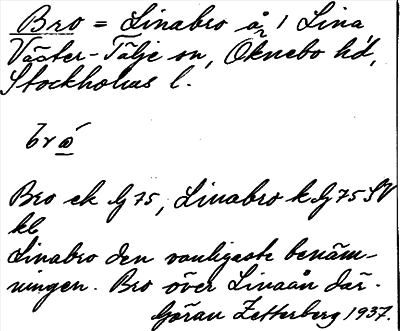 Bro = Linabro å, 1 Lina
Väster-Tälje sn, Öknebo hd,
Stockholms l.
brọ̀
Bro ek G 75, Linabro k G 75 SV
kl
Linabro den vanligaste benäm-
ningen. Bro över Linaån där.
Göran Zetterberg 1937.